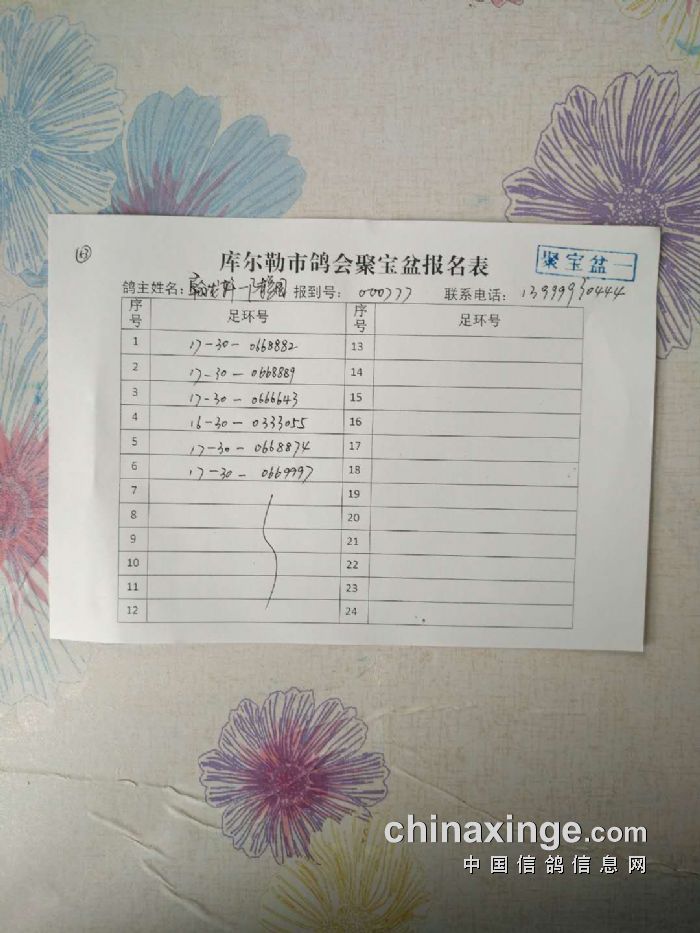 ⑬
库尔勒市鸽会聚宝盆报名表
聚宝盆一
鸽主姓名: 报到号: 000777 联系电话: 13999930444
序号 足环号 序号 足环号
1 17-30-0668882 13
2 17-30-0668889 14
3 17-30-0666643 15
4 16-30-0333055 16
5 17-30-0668874 17
6 17-30-0669997 18
7 19
8 20
9 21
10 22
11 23
12 24
chinaxinge.com
中国信鸽信息网